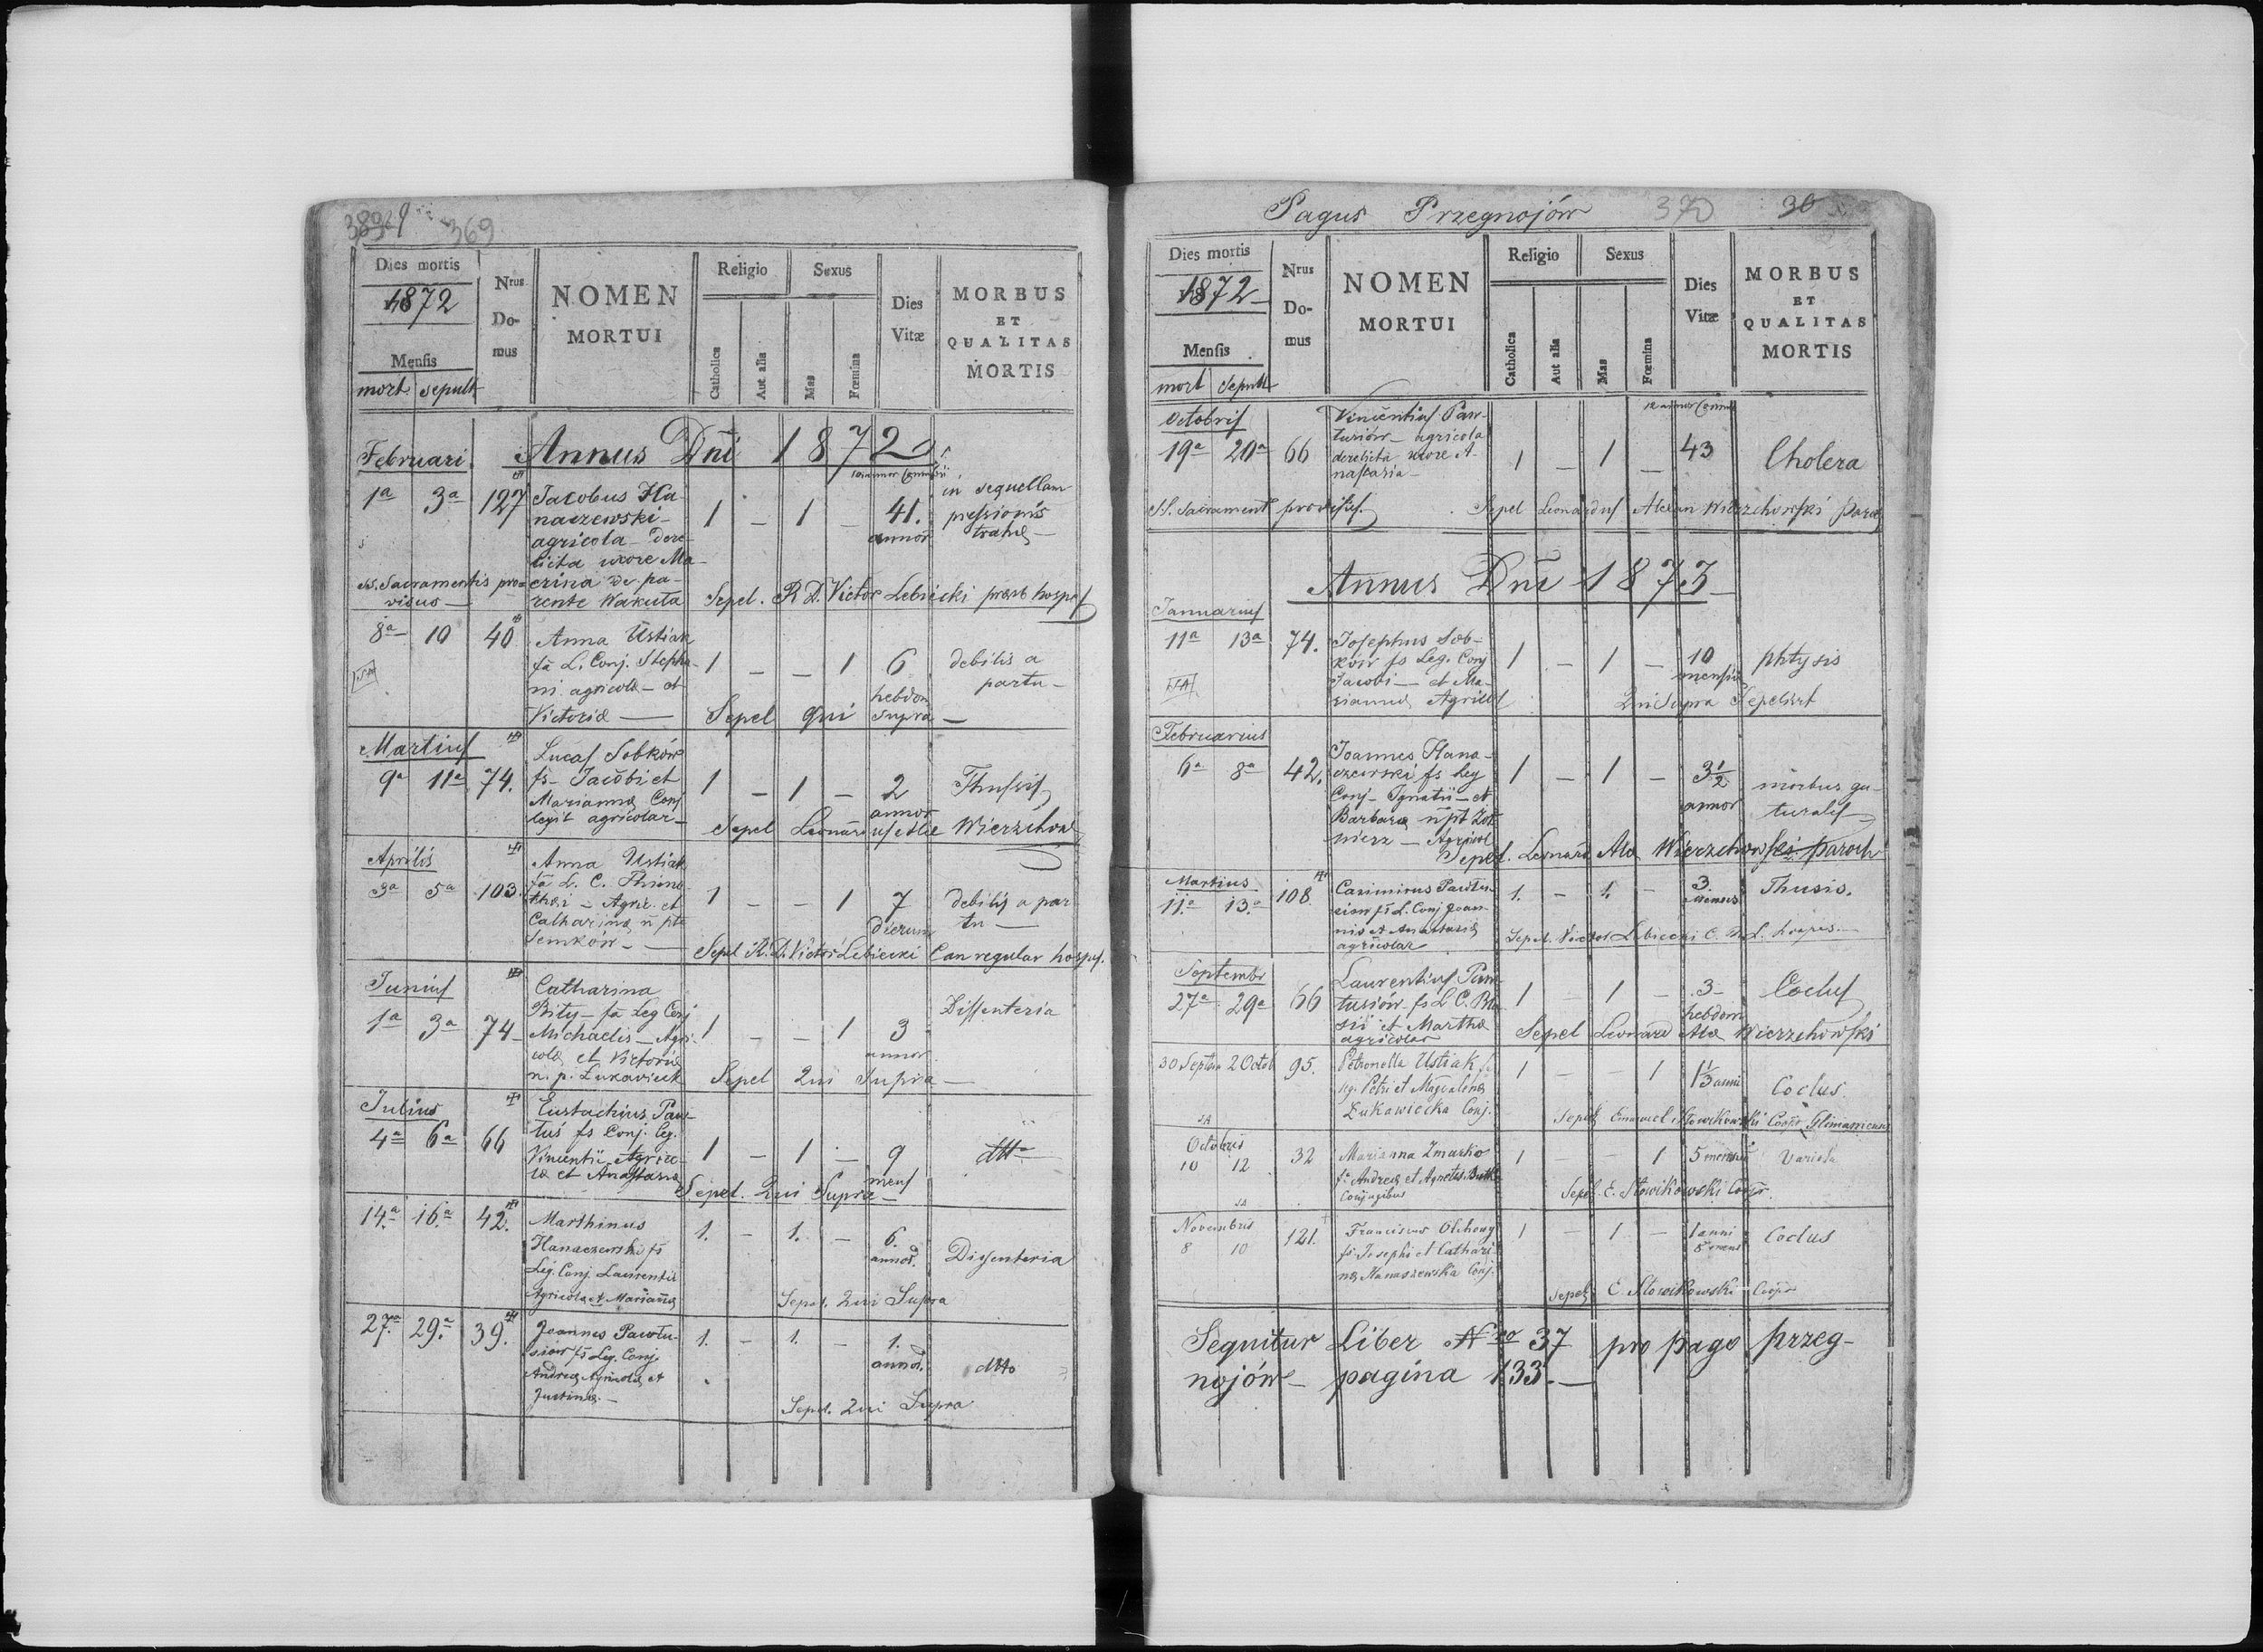 369
Dies mortis
1872
Mensis
mort. sepult
Nrus
Do-
mus
NOMEN
MORTUI
Religio
Catholica
Aut alia
Sexus
Mas
Fœmina
Dies
Vitæ
MORBUS
ET
QUALITAS
MORTIS
Februari. Annus Dni 1872
1a 3a 127 Jacobus Ha-
naczewski
agricola - dere-
licta uxore Ma-
rina de pa-
rente Wakuta
1 - 1 - 41.
annor
in sequellam
pressionis
SS. Sacramentis pro-
visus
Sepel. R. D. Victor Lebiecki
8a 10 40 Anna Ustiak
fa L. Conj. Stepha-
ni agricolæ - et
Victoriæ
1 - - 1 6
hebdom
debilis a
partu
Sepel qui supra
Martius
9a 11a 74. Lucas Sobków
fs Jacobi et
Mariannæ Conj
legit agricolar
1 - 1 - 2
annor
Thussis
Sepel Wierzchow
Aprilis
3a 5a 103. Anna Ustiak
fa L. C.
Agric. et
Catharinæ
Semków
1 - - 1 7
dierum
debilis a par
tu
Sepel R. D. Victor Lebiecki Can regular hospes.
Junius
1a 3a 74 Catharina
fa Leg Conj
Michaelis - Agri-
colæ et Victoriæ
n. p. Lukawieck
1 - - 1 3
annor
Dissenteria
Sepel Qui Supra
Julius
4a 6a 66 Eustachius Paw-
tus fs Conj. leg.
Vincentii Agrico-
læ et Anastasiæ
1 - 1 - 9
mens
dtto
Sepel. Qui Supra
14.a 16.a 42. Marthinus
Hanaczewski fs
Leg. Conj. Laurentii
Agricola et Marianna
1. - 1. - 6.
annor.
Dissenteria
Sepel. Qui Supra
27.a 29.a 39. Joannes Pawtu-
siow fs Leg. Conj.
Andreæ Agricolæ et
Justinæ
1. - 1. - 1.
annor.
dtto
Sepel. Qui Supra
Pagus Przegnojów 370 36
Dies mortis
1872
Mensis
mort sepult
Nrus
Do-
mus
NOMEN
MORTUI
Religio
Catholica
Aut alia
Sexus
Mas
Fœmina
Dies
Vitæ
MORBUS
ET
QUALITAS
MORTIS
Octobris
19a 20a 66 Vincentius Paw-
tusiów agricola
derelicta uxore A-
nastasia
1 - 1 - 43
Cholera
SS. Sacrament provisus. Sepel Leonardus Wierzchowski
Annus Dni 1873
Januarius
11a 13a 74. Josephus Sob-
ków fs Leg. Conj
Jacobi et Ma-
riannæ Agricol
1 - 1 - 10
mensis
phtysis
Qui Supra Sepelivit
Februarius
6a 8a 42. Joannes Hana-
czewski fs Leg
Conj - Ignatii - et
Barbaræ
Agricol
1 - 1 - 3 1/2
annor
morbus gu-
turalis
Sepel. Leonard Wierzchowski paroch
Martius
11.a 13.a 108 Casimirus Pawtu-
siow fs L. Conj Joan-
nis et Anastasiæ
agricolar
1. - 1. - 3.
mensis
Thusis.
Sepel. Victor Lebiecki C. R. L. hospes.
Septembr
27a 29a 66 Laurentius Paw-
tusiów fs L C. Bla-
sii et Marthæ
agricolar
1 - 1 - 3
hebdom
Coclus
Sepel Leonard Wierzchowski
30 Septbr 2 Octob 95. Petronella Ustiak
Petri et Magdalenæ
Lukawiecka Conj.
1 - - 1 1 1/3 anni
Coclus.
Sepel Emanuel Słowikowski Coopr
Octobris
10 12 32 Marianna Zmarko
fa Andreæ et Agnetis
Conjugibus
1 - - 1 5 mensium
Variola
Sepel. E. Słowikowski Coopr.
Novembris
8 10 121. Franciscus Olchowy
fs Josephi et Cathari-
næ Hanaszewska Conj.
1 - 1 - 1 anni
8 mens
Coclus
Sepel E. Słowikowski Coopr
Sequitur Liber Nro 37 pro pago Przeg-
nojów pagina 133.